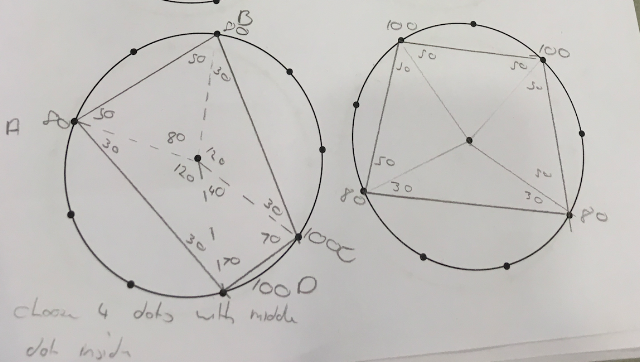 B
80
100
50
50
100
50
30
50
50
A
80
50
80
120
50
50
30
120
140
80
30
30
80
30
30
70
100C
170
100D
choose 4 dots with middle
dot inside